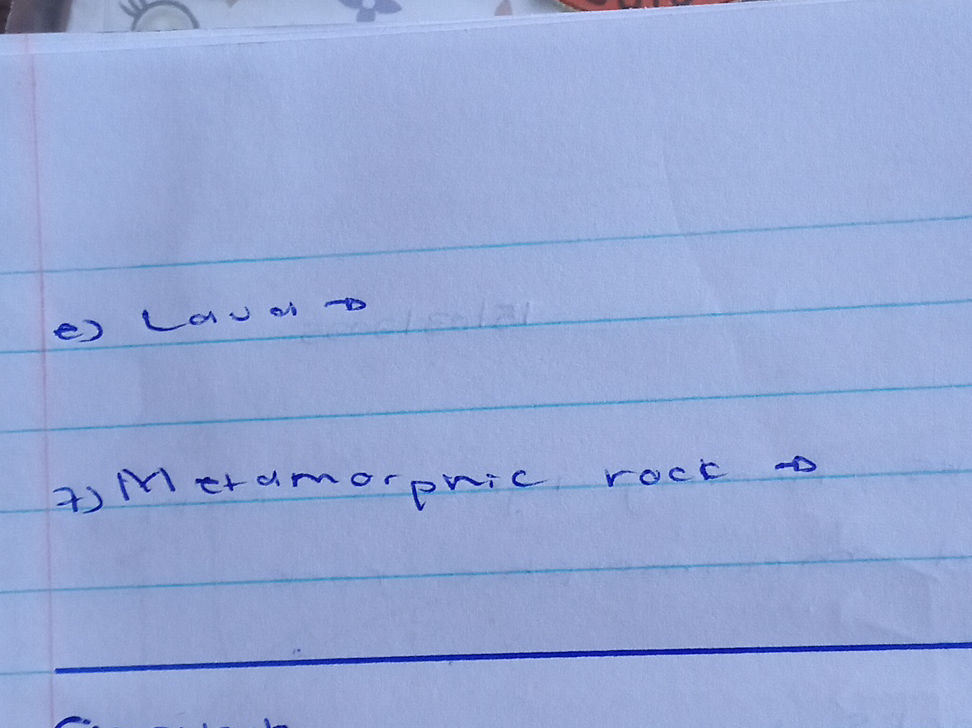 e) Lava →
7) Metamorphic rock →